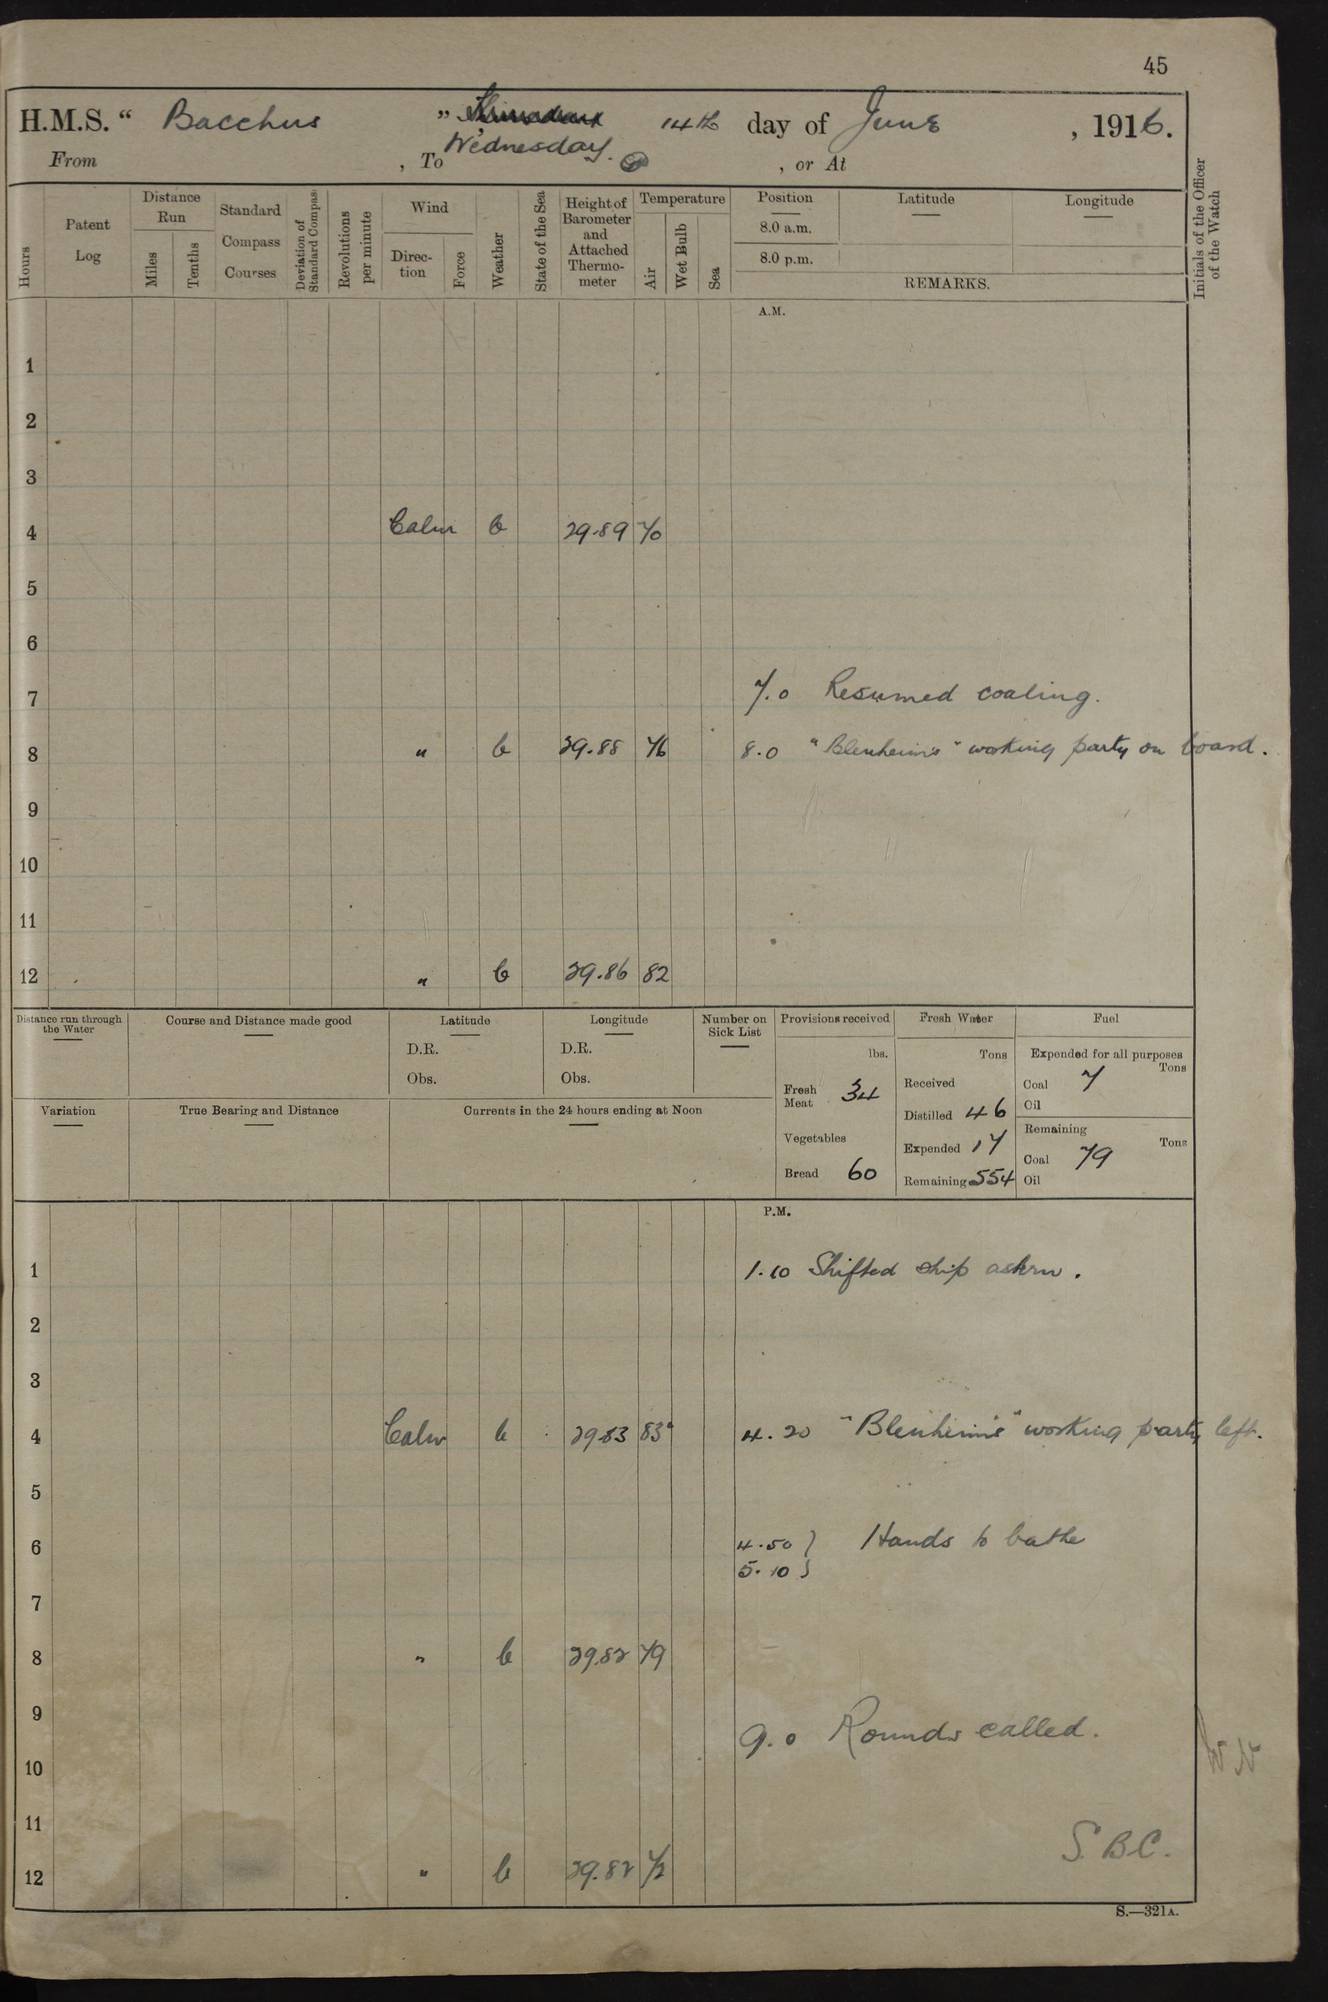 45
H.M.S. “ Bacchus ” Thursday 14th day of June , 1916.
From , To Wednesday. , or At
Hours
Patent Log
Distance Run
Miles
Tenths
Standard Compass Courses
Deviation of Standard Compass
Revolutions per minute
Wind
Direction
Force
Weather
State of the Sea
Height of Barometer and Attached Thermometer
Temperature
Air
Wet Bulb
Sea
Position
8.0 a.m.
8.0 p.m.
Latitude
Longitude
REMARKS.
Initials of the Officer of the Watch
A.M.
1
2
3
4 Calm b 29.89 70
5
6
7 7.0 Resumed coaling.
8 " b 29.88 76 8.0 "Blenheim's" working party on board.
9
10
11
12 " b 29.86 82
Distance run through the Water
Course and Distance made good
Latitude
D.R.
Obs.
Longitude
D.R.
Obs.
Number on Sick List
Variation
True Bearing and Distance
Currents in the 24 hours ending at Noon
Provisions received
lbs.
Fresh Meat 34
Vegetables
Bread 60
Fresh Water
Tons
Received
Distilled 46
Expended 17
Remaining 554
Fuel
Expended for all purposes
Tons
Coal 7
Oil
Remaining
Tons
Coal 79
Oil
P.M.
1 1.10 Shifted ship astern.
2
3
4 Calm b 29.83 83° 4.20 "Blenheim's" working party left.
5
6 4.50 } Hands to bathe
5.10 }
7
8 " b 29.82 79
9 9.0 Rounds called.
10
11 S.B.C.
12 " b 29.82 72
S.—321A.